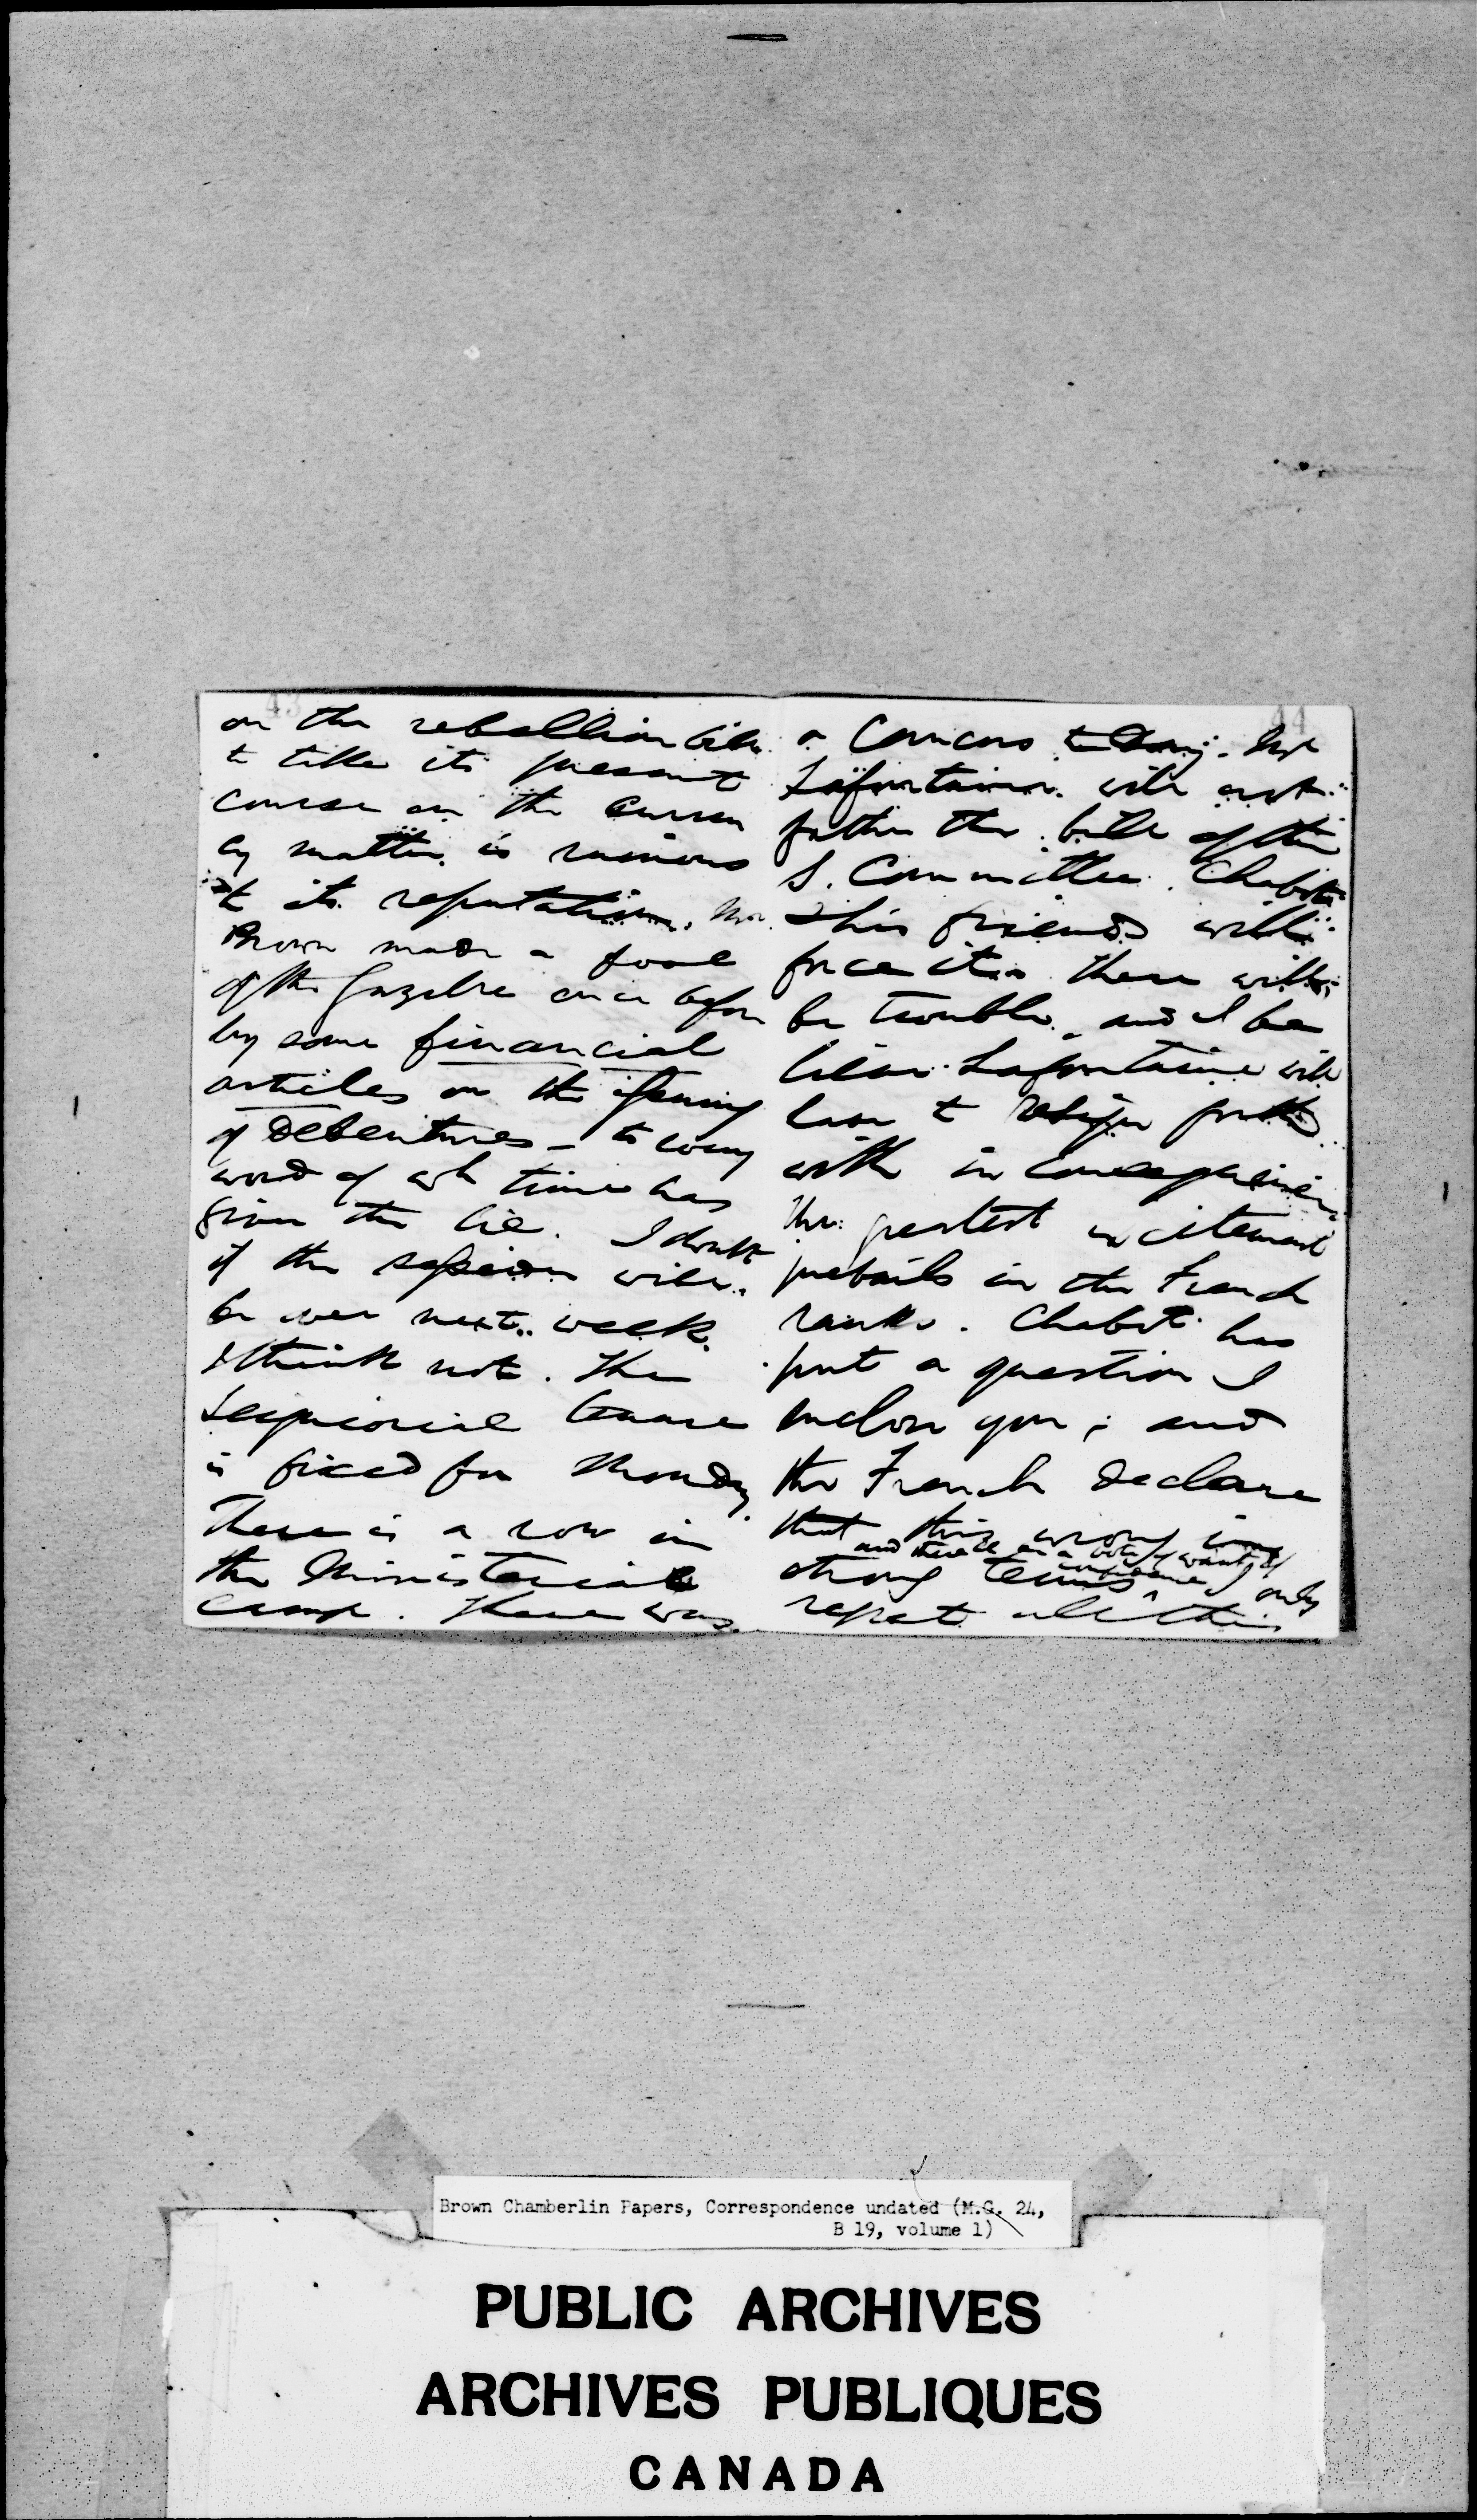 43
on the rebellion bill
to take its present
course on the curren
cy matter is ruinous
to its reputation. Mr.
Brown made a fool
of the Gazette once before
by some financial
articles on the issuing
of Debentures - to every
word of wh time has
given the lie. I doubt
if the session will
be over next week.
I think not. The
Seigniorial tenure
is fixed for Monday.
There is a row in
the Ministerial
camp. There was
44
a Caucus to day.
Lafontaine will not
father the bill of the
S. Committee. Chabot
& his friends will
force it. There will
be trouble, and I be
lieve Lafontaine will
have to resign forth
with in consequence
The greatest excitement
prevails in the French
ranks. Chabot has
put a question I
enclose you; and
the French declare
that this wrong in
and there be a vote of want of
confidence
strong terms I only
repeat all this
Brown Chamberlin Papers, Correspondence undated (M.G. 24,
B 19, volume 1)
PUBLIC ARCHIVES
ARCHIVES PUBLIQUES
CANADA